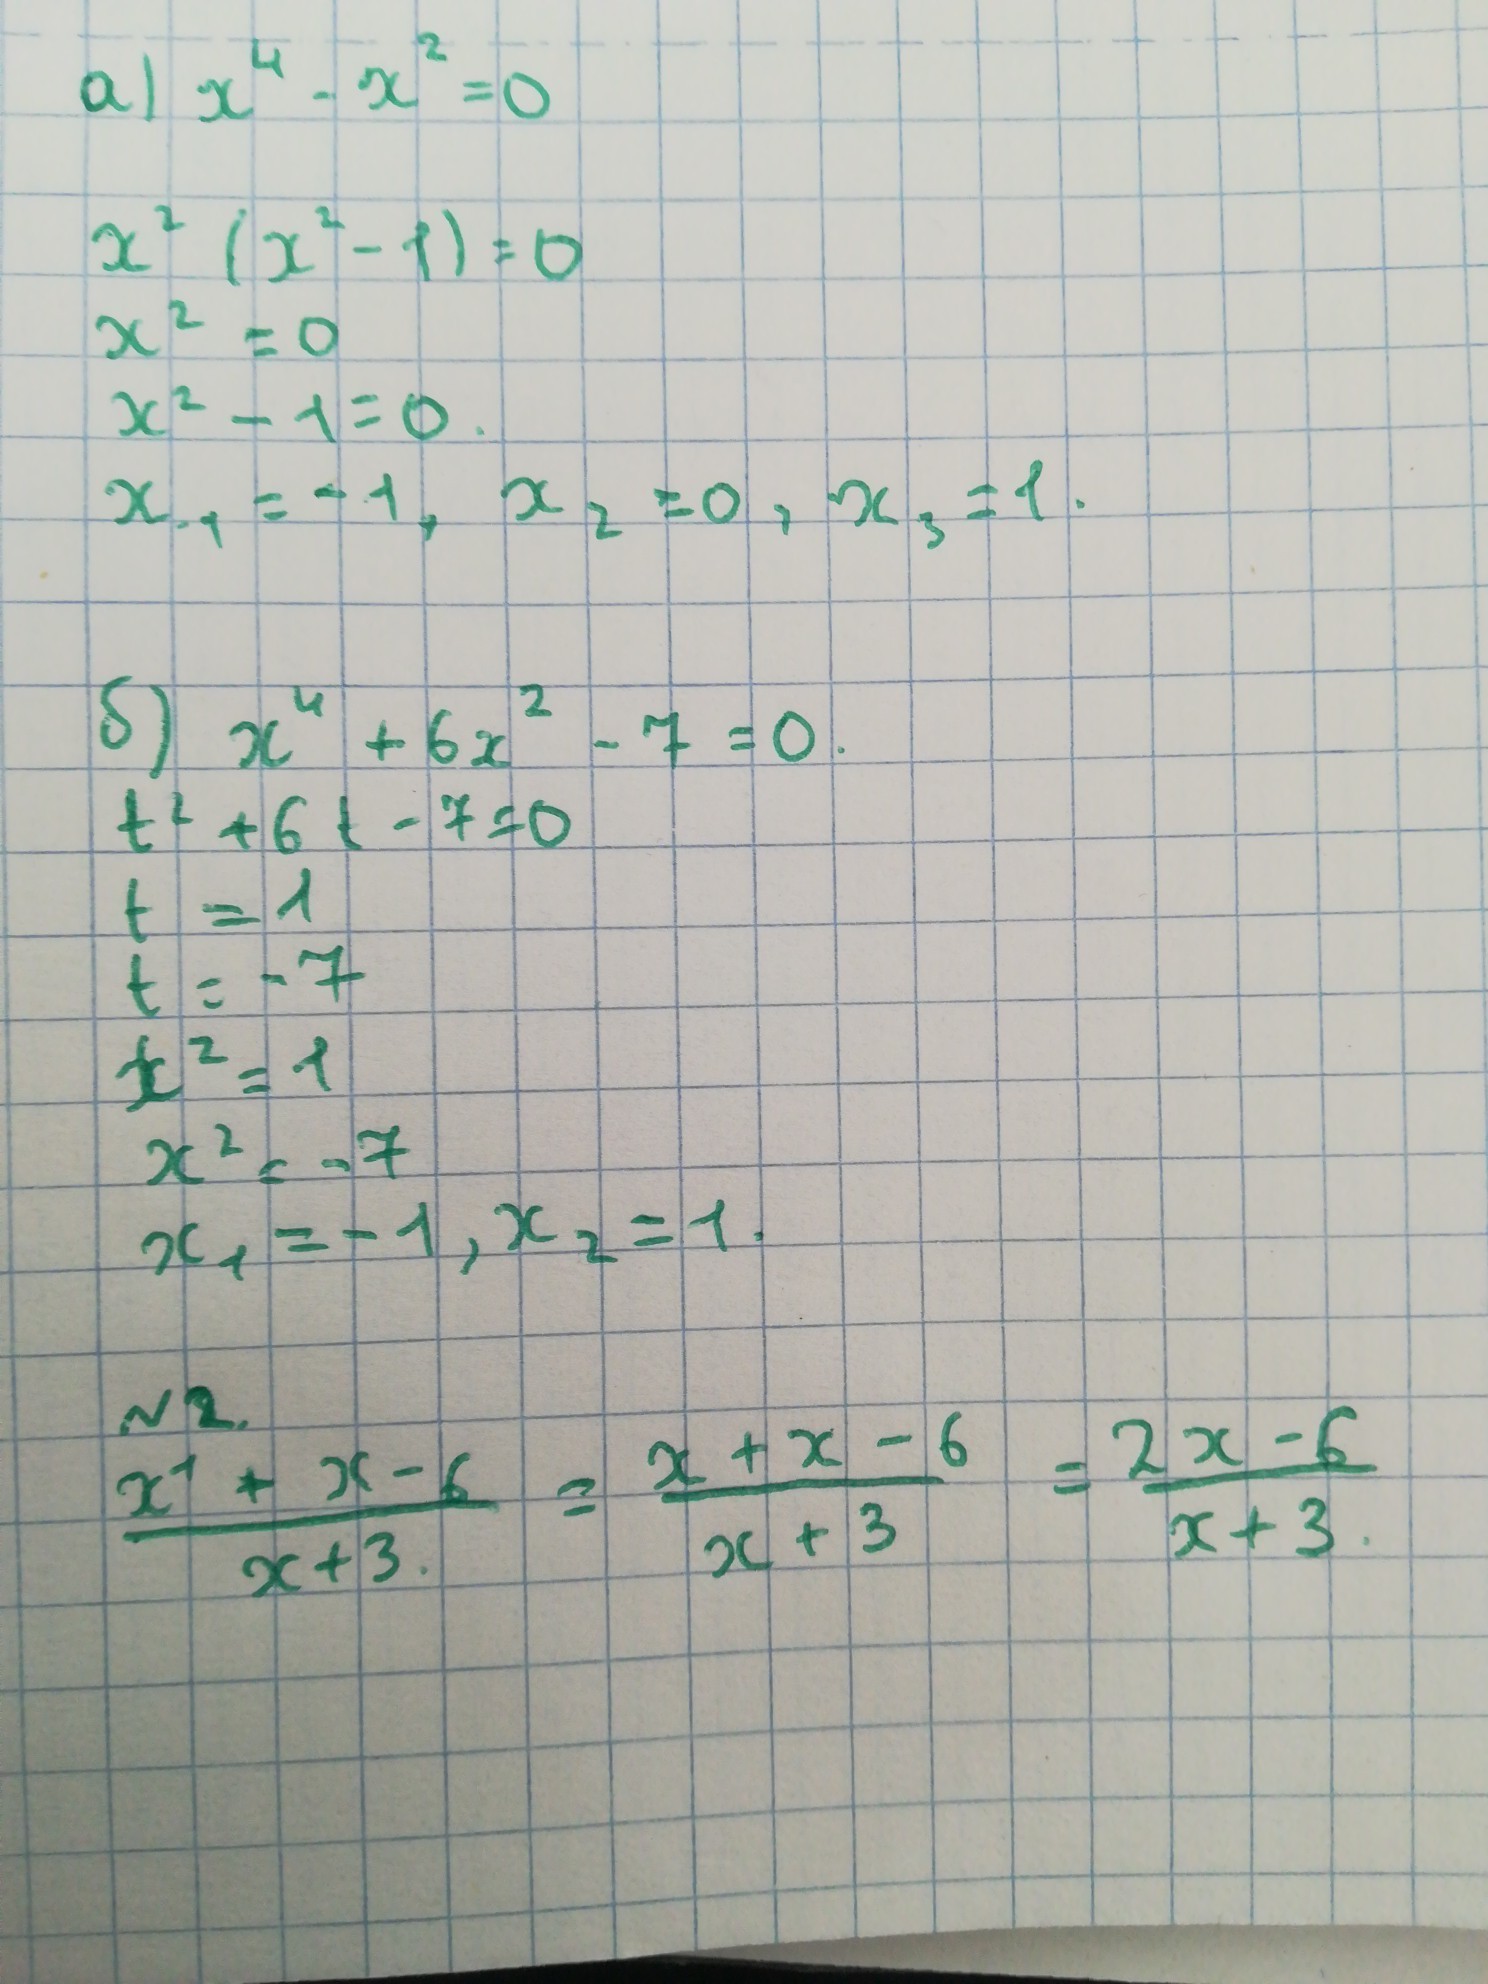 а) x⁴ - x² = 0
x² (x² - 1) = 0
x² = 0
x² - 1 = 0.
x₁ = -1, x₂ = 0, x₃ = 1.
б) x⁴ + 6x² - 7 = 0.
t² + 6t - 7 = 0
t = 1
t = -7
x² = 1
x² = -7
x₁ = -1, x₂ = 1.
№2.
(x¹ + x - 6)/(x + 3.) = (x + x - 6)/(x + 3) = (2x - 6)/(x + 3.)